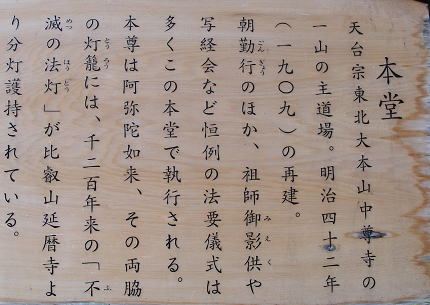 本堂
天台宗東北大本山中尊寺の
一山の主道場。明治四十二年
(一九〇九)の再建。
朝勤行のほか、祖師御影供や
ごんぎょう
みえく
写経会など恒例の法要儀式は
多くこの本堂で執行される。
本尊は阿弥陀如来、その両脇
の灯籠には、千二百年来の「不
とうろう
ふ
滅の法灯」が比叡山延暦寺よ
めつ
ほうとう
り分灯護持されている。